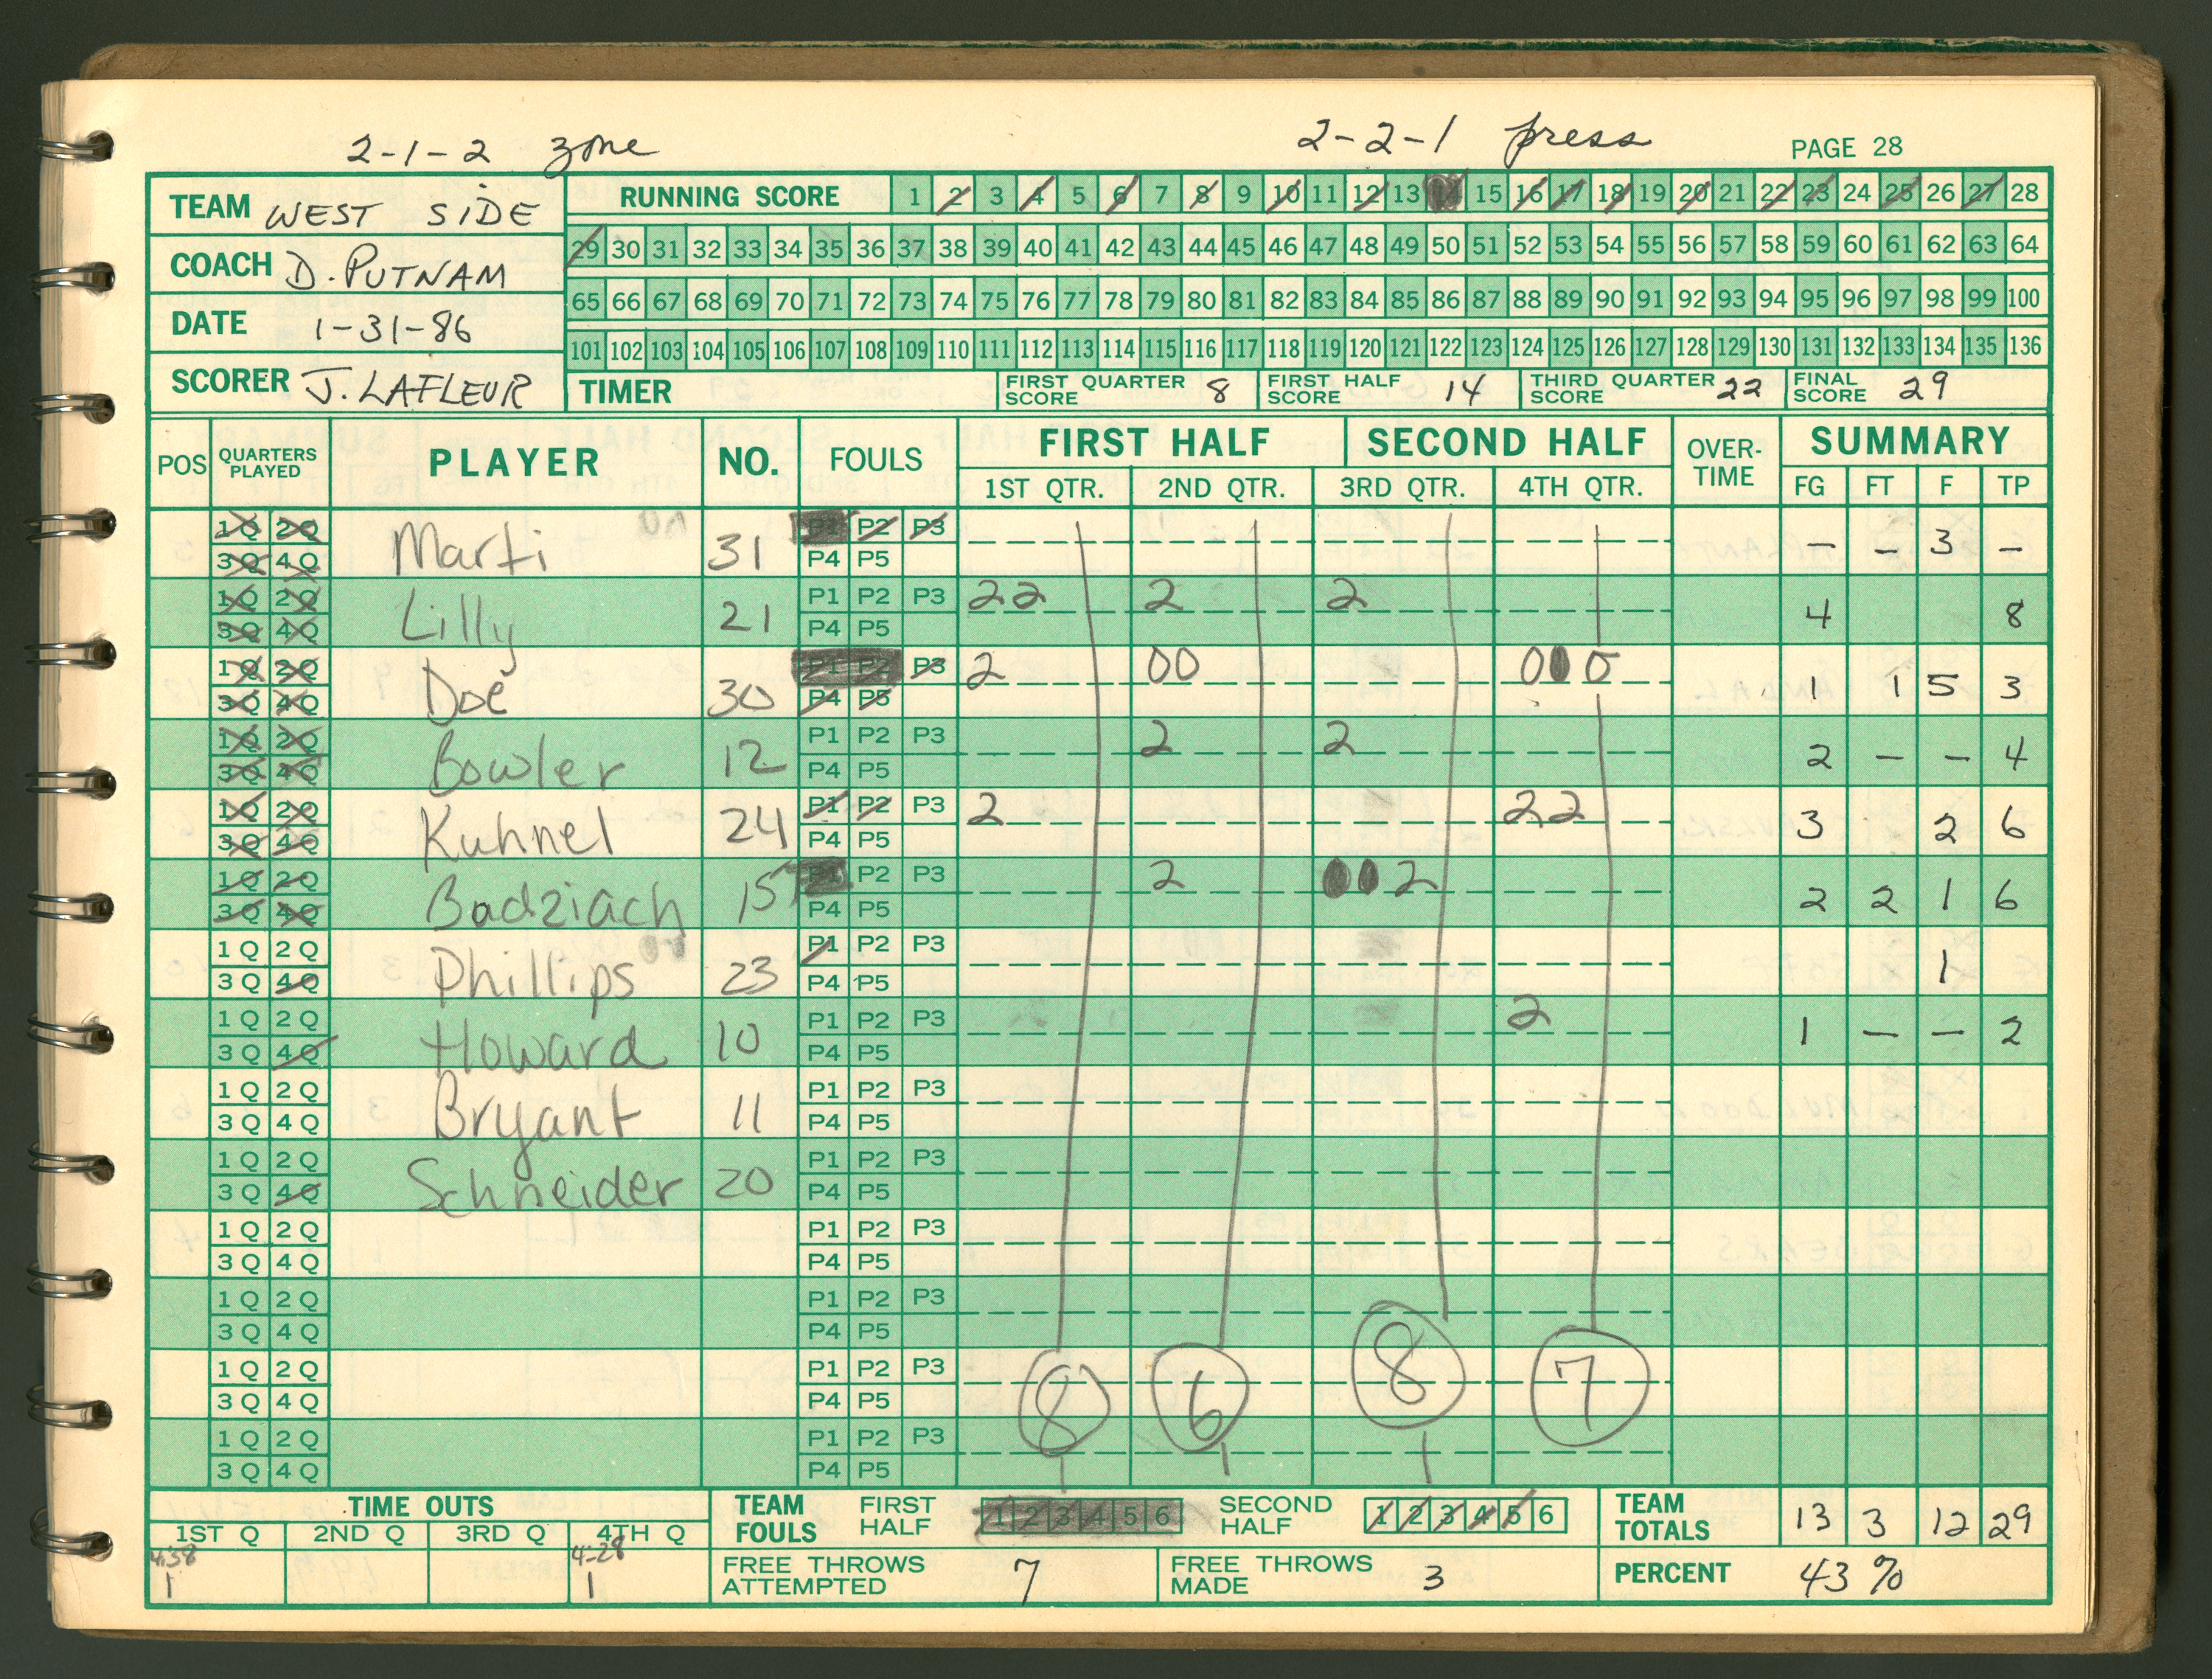 2-1-2 zone 2-2-1 press PAGE 28
TEAM WEST SIDE
COACH D. PUTNAM
DATE 1-31-86
SCORER J. LAFLEUR
RUNNING SCORE 1 2 3 4 5 6 7 8 9 10 11 12 13 14 15 16 17 18 19 20 21 22 23 24 25 26 27 28
29 30 31 32 33 34 35 36 37 38 39 40 41 42 43 44 45 46 47 48 49 50 51 52 53 54 55 56 57 58 59 60 61 62 63 64
65 66 67 68 69 70 71 72 73 74 75 76 77 78 79 80 81 82 83 84 85 86 87 88 89 90 91 92 93 94 95 96 97 98 99 100
101 102 103 104 105 106 107 108 109 110 111 112 113 114 115 116 117 118 119 120 121 122 123 124 125 126 127 128 129 130 131 132 133 134 135 136
TIMER FIRST QUARTER SCORE 8 FIRST HALF SCORE 14 THIRD QUARTER SCORE 22 FINAL SCORE 29
POS QUARTERS PLAYED PLAYER NO. FOULS FIRST HALF SECOND HALF OVER-TIME SUMMARY
1ST QTR. 2ND QTR. 3RD QTR. 4TH QTR. FG FT F TP
1Q 2Q Marti 31 P1 P2 P3 - - 3 -
3Q 4Q P4 P5
1Q 2Q Lilly 21 P1 P2 P3 22 2 2 4 8
3Q 4Q P4 P5
1Q 2Q Doe 30 P1 P2 P3 2 00 000 1 1 5 3
3Q 4Q P4 P5
1Q 2Q Bowler 12 P1 P2 P3 2 2 2 - - 4
3Q 4Q P4 P5
1Q 2Q Kuhnel 24 P1 P2 P3 2 22 3 2 6
3Q 4Q P4 P5
1Q 2Q Badziach 15 P1 P2 P3 2 002 2 2 1 6
3Q 4Q P4 P5
1Q 2Q Phillips 23 P1 P2 P3 1
3Q 4Q P4 P5
1Q 2Q Howard 10 P1 P2 P3 2 1 - - 2
3Q 4Q P4 P5
1Q 2Q Bryant 11 P1 P2 P3
3Q 4Q P4 P5
1Q 2Q Schneider 20 P1 P2 P3
3Q 4Q P4 P5
1Q 2Q P1 P2 P3
3Q 4Q P4 P5
1Q 2Q P1 P2 P3
3Q 4Q P4 P5
1Q 2Q P1 P2 P3 8 6 8 7
3Q 4Q P4 P5
1Q 2Q P1 P2 P3
3Q 4Q P4 P5
TIME OUTS
1ST Q 2ND Q 3RD Q 4TH Q
4:38 4-28
1 1
TEAM FOULS FIRST HALF 1 2 3 4 5 6 SECOND HALF 1 2 3 4 5 6 TEAM TOTALS 13 3 12 29
FREE THROWS ATTEMPTED 7 FREE THROWS MADE 3 PERCENT 43%